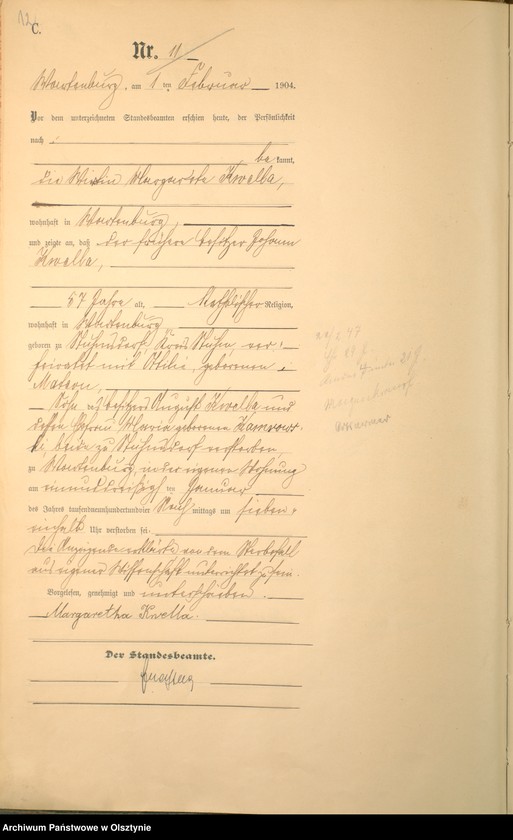 C.
Nr. 11
Wartenburg, am 1 ten Februar 1904.
Vor dem unterzeichneten Standesbeamten erschien heute, der Persönlichkeit
nach
be kannt,
die Wirtin Margarete Kwella,
wohnhaft in Wartenburg,
und zeigte an, daß der frühere Besitzer Johann
Kwella,
57 Jahre alt, katholischer Religion,
wohnhaft in Wartenburg
geboren zu Stuhmsdorf, Kreis Stuhm, ver-
heiratet mit Otilie, geborenen
Matern,
Sohn des Besitzers August Kwella und
dessen Ehefrau Maria geborenen
ki, beide zu Stuhmsdorf verstorben,
zu Wartenburg, in der eigenen Wohnung
am einunddreißigsten Januar
des Jahres tausendneunhundertundvier Nach mittags um sieben
einhalb Uhr verstorben sei.
Die Anzeigende erklärte von dem Sterbefall
aus eigener Wissenschaft unterrichtet zu sein.
Vorgelesen, genehmigt und unterschrieben.
Margaretha Kwella.
Der Standesbeamte.
Archiwum Państwowe w Olsztynie